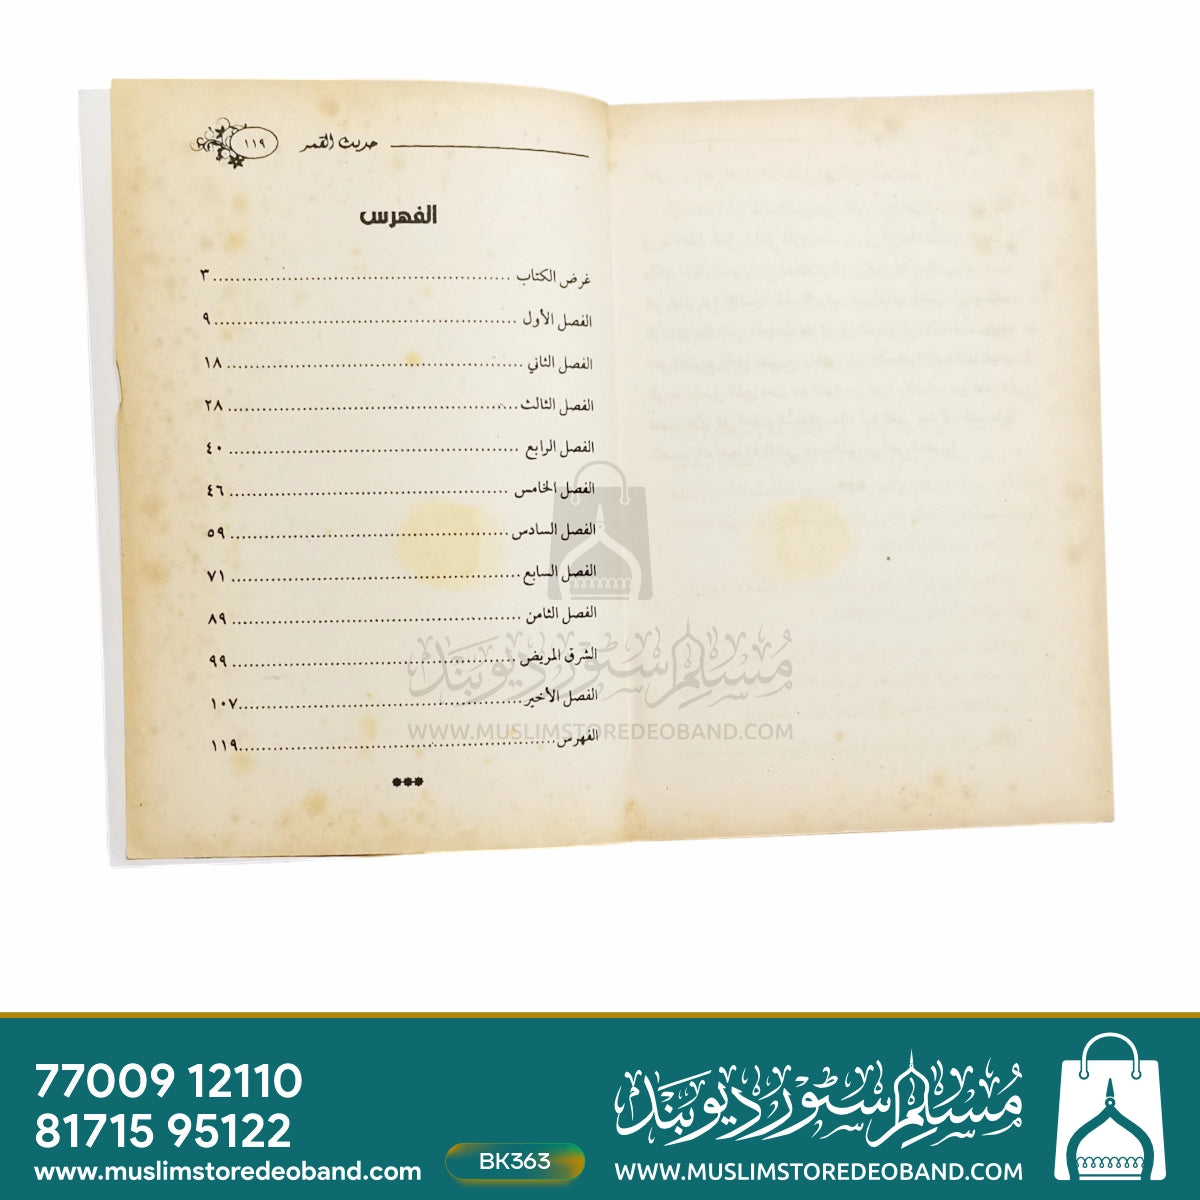 حديث القمر ١١٩
الفهرس
غرض الكتاب ................ ٣
الفصل الأول ................ ٩
الفصل الثاني ................ ١٨
الفصل الثالث ................ ٢٨
الفصل الرابع ................ ٤٠
الفصل الخامس ................ ٤٦
الفصل السادس ................ ٥٩
الفصل السابع ................ ٧١
الفصل الثامن ................ ٨٩
الشرق المريض ................ ٩٩
الفصل الأخير ................ ١٠٧
الفهرس ................ ١١٩
***
مسلم سٹور دیوبند
WWW.MUSLIMSTOREDEOBAND.COM
77009 12110
81715 95122
www.muslimstoredeoband.com
BK363
مسلم سٹور دیوبند
WWW.MUSLIMSTOREDEOBAND.COM